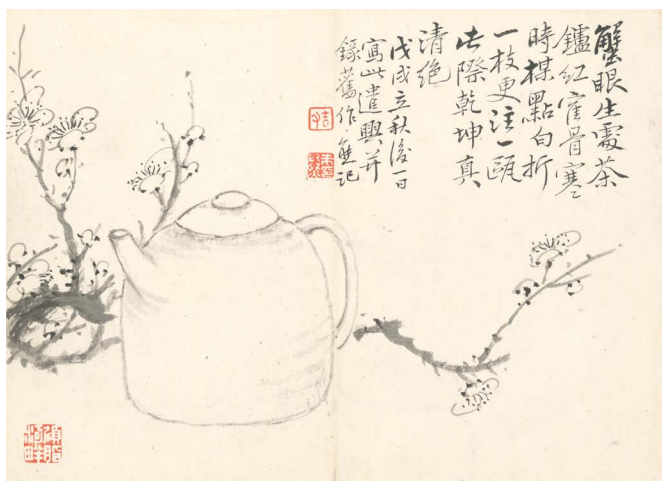 蟹眼生雲茶
鑪紅寉骨寒
時楳點白折
一枝更注一甌
此際乾坤真
清絶
戊戌立秋後一日
寫此遣興并
錄舊作記